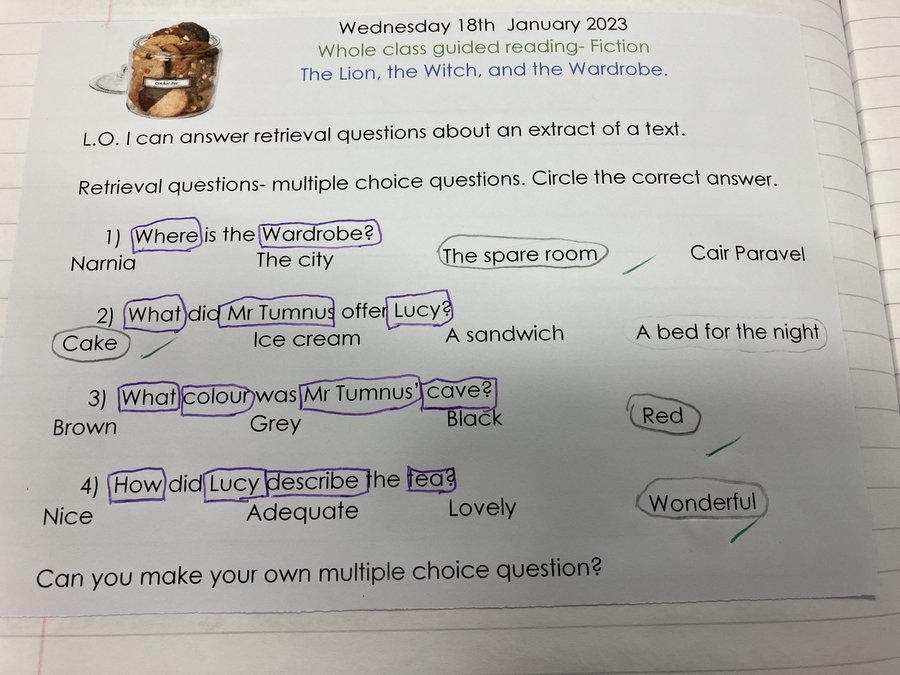 Wednesday 18th January 2023
Whole class guided reading- Fiction
The Lion, the Witch, and the Wardrobe.
Cookie Jar
L.O. I can answer retrieval questions about an extract of a text.
Retrieval questions- multiple choice questions. Circle the correct answer.
1) Where is the Wardrobe?
Narnia The city The spare room Cair Paravel
2) What did Mr Tumnus offer Lucy?
Cake Ice cream A sandwich A bed for the night
3) What colour was Mr Tumnus' cave?
Brown Grey Black Red
4) How did Lucy describe the tea?
Nice Adequate Lovely Wonderful
Can you make your own multiple choice question?